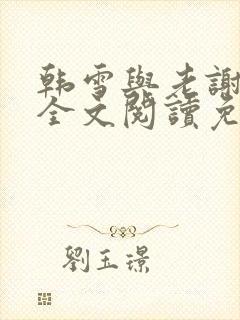 韩雪與老謝
全文閱讀免
劉玉璟